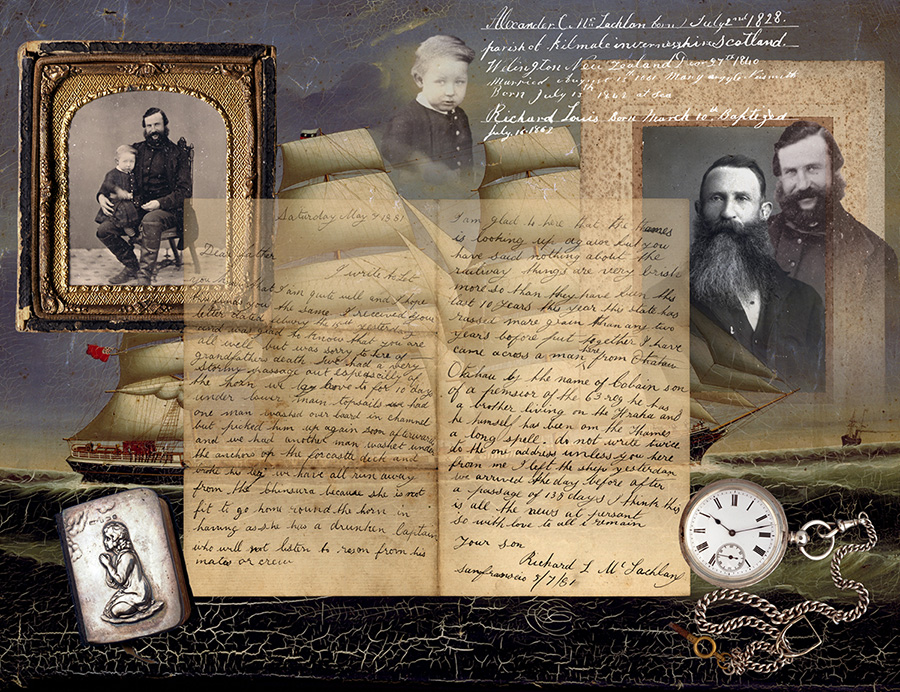 Alexander C. Mc Lachlan born July 2nd 1828.
parish of Kilmale invernesshire Scotland.
Wilington New Zealand 27th 1840
Married 1st 1861 Mary
Born July 12th 1862 at Sea
Richard Louis Born March 10th Baptized
July, 16. 1863
Saturday May 7 1881
Dear Father
I write to Let
you that I am quite well and I hope
this you the same. I received your
letter dated the 10th yesterday
and was glad to know that you are
all well but was sorry to here of
grandfathers death we had a very
stormy passage out especially of
the horn we lay hove to for 10 days
under lower main topsails we had
one man washed over board in channel
but picked him up again soon afterwards
and we had another man washed under
the anchors on the forcastle deck and
broke his leg we have all run away
from the because she is not
fit to go home round the horn in
having as she has a drunken Captain
who will not listen to reson from his
mates or crew
I am glad to here that the thames
is looking up again but you
have said nothing about the
railway things are very brisk
more so than they have been this
last 10 years this year this state has
raised more grain than any two
years before put together I have
came across a man here from Otahau
Otahau by the name of Cobain son
of a pensior of the 63 reg he has
a brother living on the and
he himself has been on the thames
a long spell. do not write twice
to the one address unless you here
from me I left the ship yesterday
we arrived the day before after
a passage of 138 days I think this
is all the news at persant
so with love to all I remain
Your son
Richard L Mc Lachlan
sanfransco 5/7/81